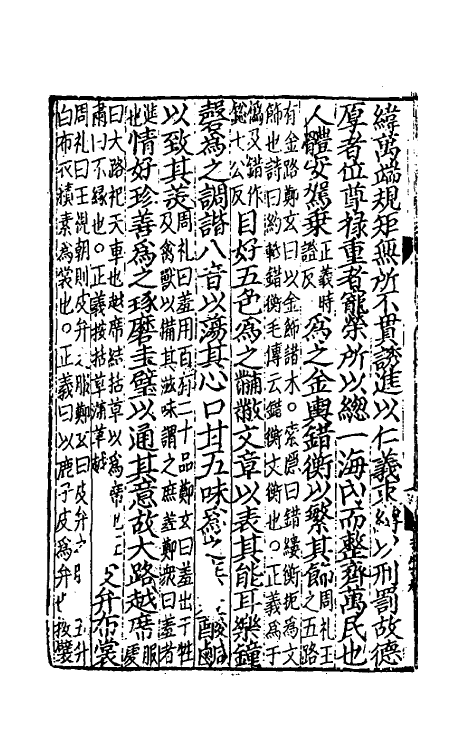 緯萬端規矩無所不貫誘進以仁義束縛以刑罰故德
厚者位尊祿重者寵榮所以總一海內而整齊萬民也
人體安駕乗正義時證反爲之金輿錯衡以繁其飾周礼王之五路
有金路鄭玄曰以金飾諸末。索隱曰錯鏤衡扼爲文
飾也詩曰約軧錯衡毛傳云錯衡文衡也。正義爲于
僞反錯作
緫七公反目好五色爲之黼黻文章以表其能耳樂鐘
磬爲之調諧八音以蕩其心口甘五味爲之 酸鹹
以致其美周礼曰羞用百有二十品鄭玄曰羞出于牲
及禽獸以備其滋味謂之庶羞鄭衆曰羞者
進也情好珍善爲之琢磨圭璧以通其意故大路越席服虔
曰大路祀天車也越席結括草以爲席也
肅曰不緣也。正義按括草蒲草越 皮弁布裳
周礼曰王視朝則皮弁之服鄭玄曰皮弁之服 玉升
白布衣積素爲裳也。正義曰以鹿子皮爲弁也按襞